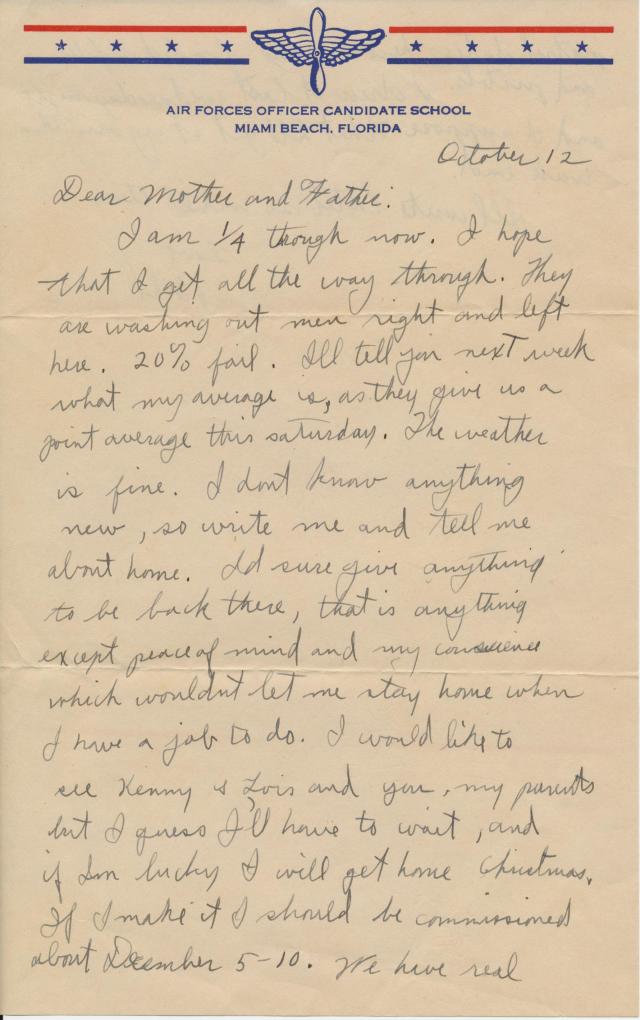 AIR FORCES OFFICER CANDIDATE SCHOOL
MIAMI BEACH, FLORIDA
October 12
Dear Mother and Father:
I am 1/4 though now. I hope
that I get all the way through. They
are washing out men right and left
here. 20% fail. Ill tell you next week
what my average is, as they give us a
point average this saturday. The weather
is fine. I dont know anything
new, so write me and tell me
about home. Id sure give anything
to be back there, that is anything
except peace of mind and my conscience
which wouldn't let me stay home when
I have a job to do. I would like to
see Kenny & Lois and you, my parents
but I guess I'll have to wait, and
if Im lucky I will get home Christmas.
If I make it I should be commissioned
about December 5-10. We have real